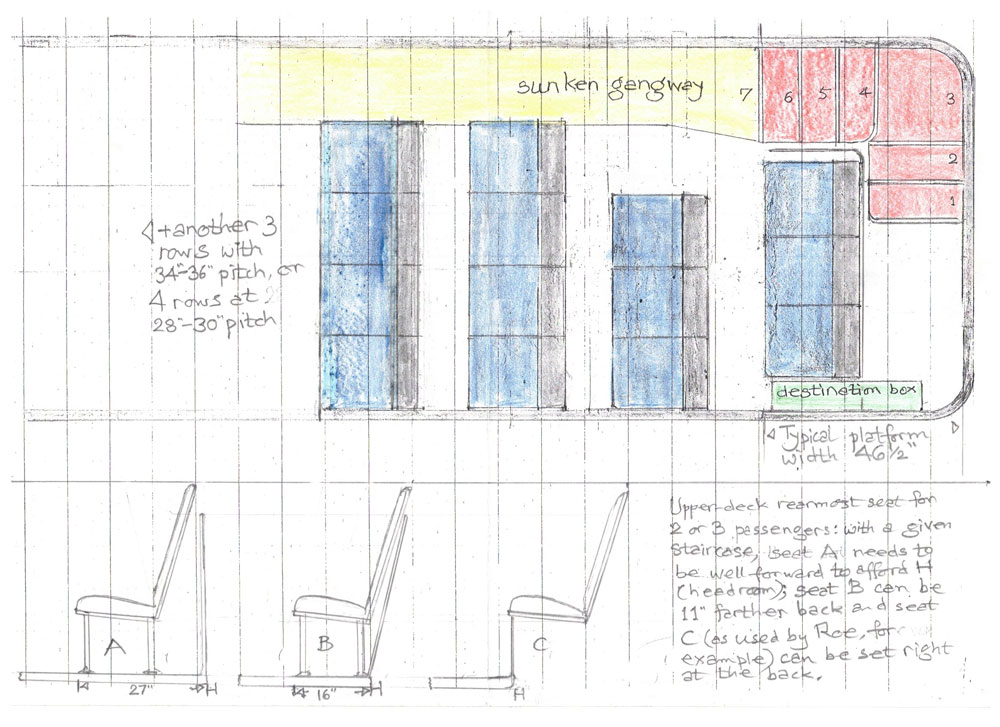 sunken gangway
7
6
5
4
3
2
1
◁ + another 3
rows with
34"-36" pitch, or
4 rows at
28"-30" pitch
destination box
◁ Typical platform ▷
width 46½"
A
27"
H
B
16"
H
C
H
Upper-deck rearmost seat for
2 or 3 passengers: with a given
staircase, seat A needs to
be well forward to afford H
(headroom); seat B can be
11" farther back and seat
C (as used by Roe, for
example) can be set right
at the back.